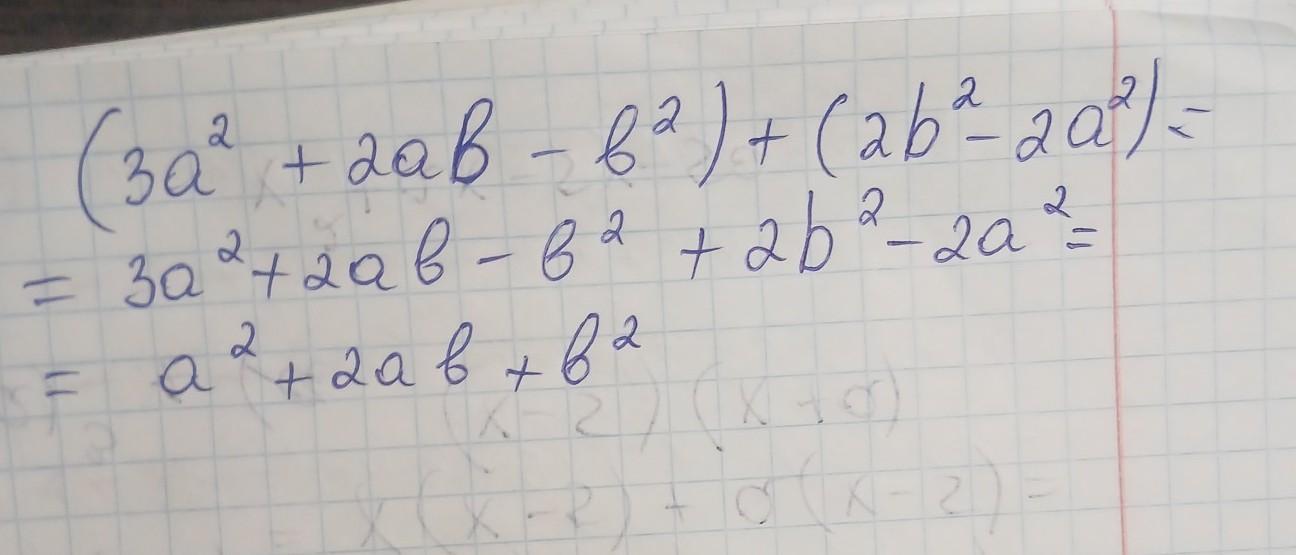 (3a² + 2ab - b²) + (2b² - 2a²) =
= 3a² + 2ab - b² + 2b² - 2a² =
= a² + 2ab + b²
(x - 2) (x + a)
= x (x - 2) + a (x - 2) =